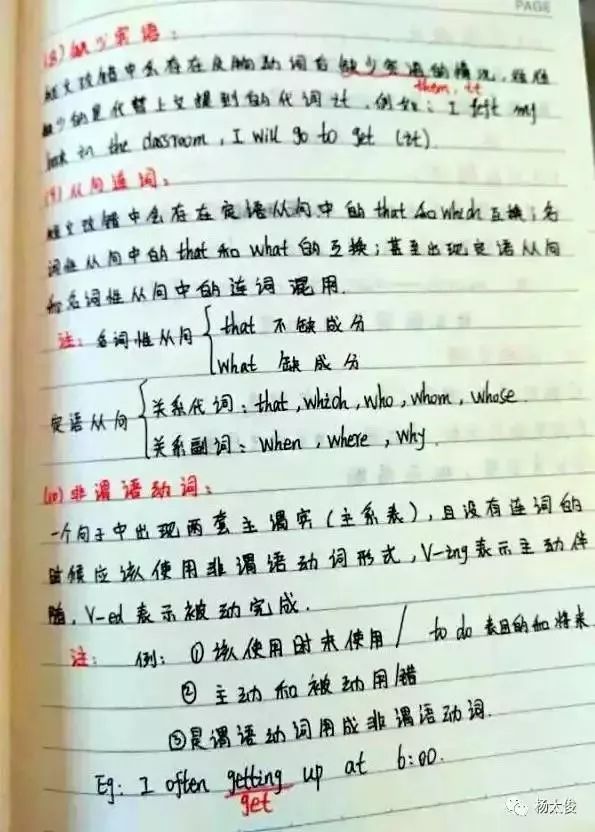 PAGE
(8) 缺少宾语：
短文改错中会存在及物动词后缺少宾语的情况，往往
them, it
缺少的是代替上文提到的代词it，例如：I left my
book in the classroom, I will go to get (it).
(9) 从句连词：
短文改错中会存在定语从句中的that和which互换；名
词性从句中的that和what的互换；甚至出现定语从句
和名词性从句中的连词混用.
注：名词性从句 { that 不缺成分
what 缺成分
定语从句 { 关系代词：that, which, who, whom, whose.
关系副词：when, where, why.
(10) 非谓语动词：
一个句子中出现两套主谓宾(主系表)，且没有连词的
时候应该使用非谓语动词形式，V-ing表示主动伴
随，V-ed表示被动完成.
注： 例：①该使用时未使用 / to do 表目的和将来
② 主动和被动用错
③是谓语动词用成非谓语动词.
Eg: I often getting up at 6:00.
get
杨太俊